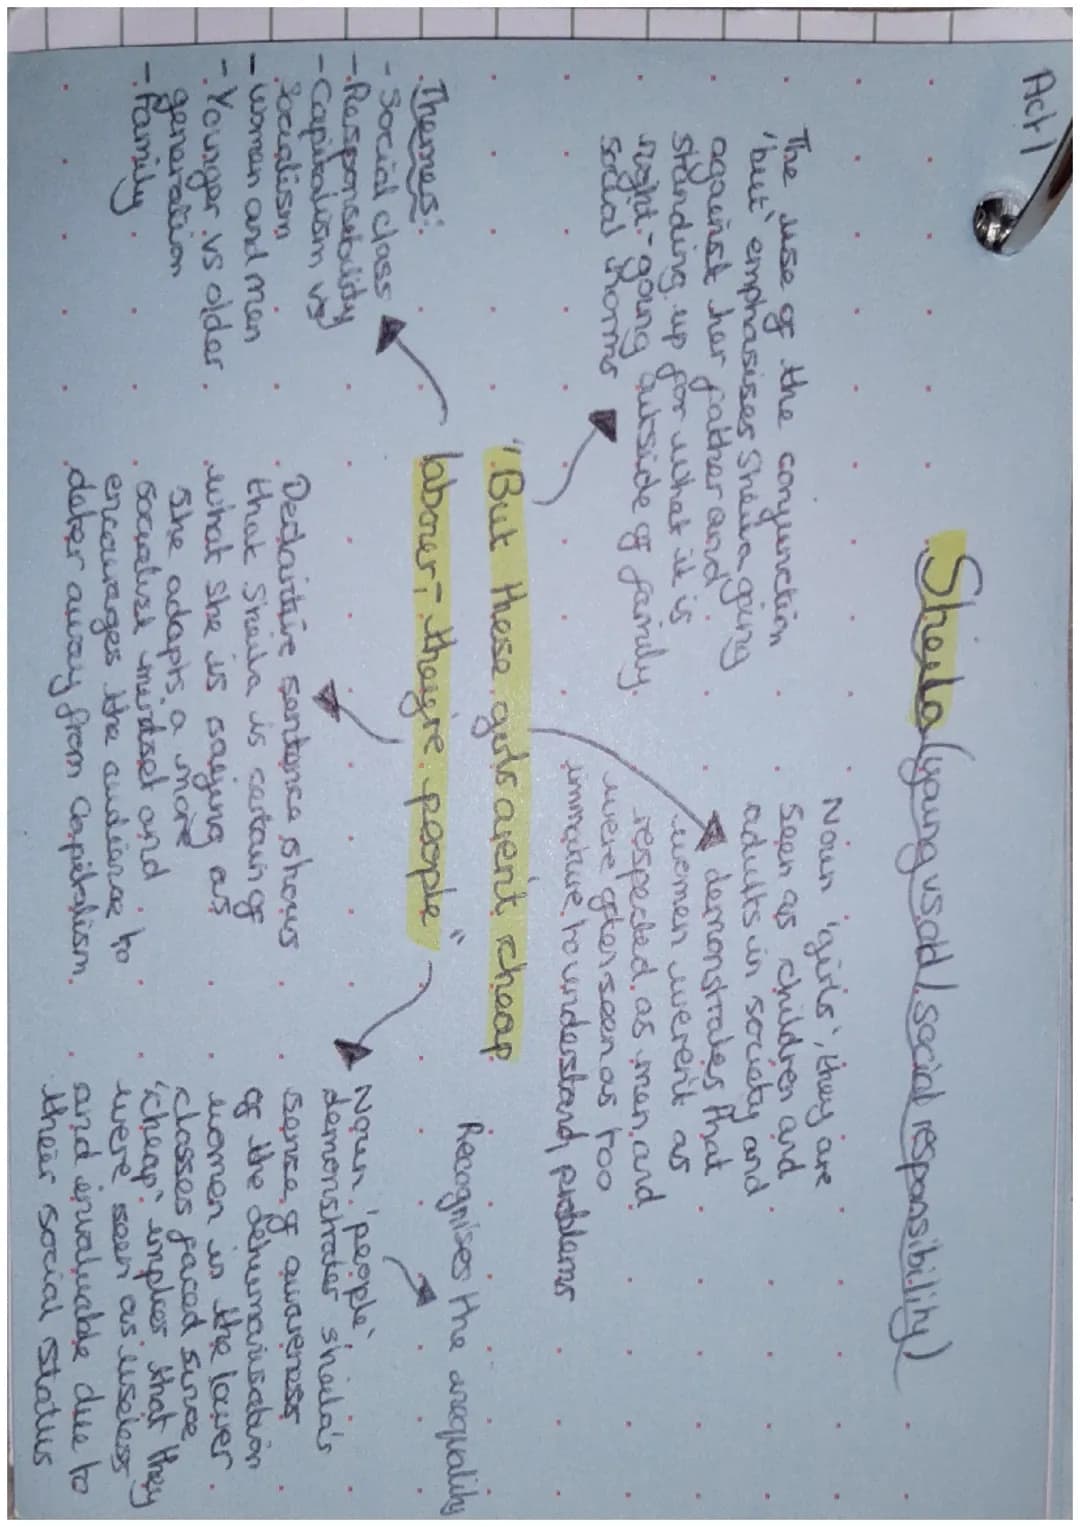 Act 1
Sheila (young vs old / social responsibility)
The use of the conjunction
'but' emphasises Sheila going
against her father and
standing up for what it is
right - going outside of family
social norms
Noun 'girls', they are
seen as children and
adults in society and
demonstrates that
women weren't as
respected as men and
were often seen as too
immature to understand problems
"But these girls arent cheap
labour, they're people"
Themes:
- Social class
- Responsibility
- Capitalism vs
Socialism
- women and men
- Younger vs older
generation
- Family
Declaritive sentence shows
that Sheila is certain of
what she is saying as
she adapts a more
socialist mindset and
encourages the audience to
deter away from capitalism
Recognises the inequality
Noun 'people'
demonstrates sheila's
sense of awareness
of the dehumanisation
women in the lower
classes faced since
'cheap' implies that they
were seen as useless
and invaluable due to
their social status